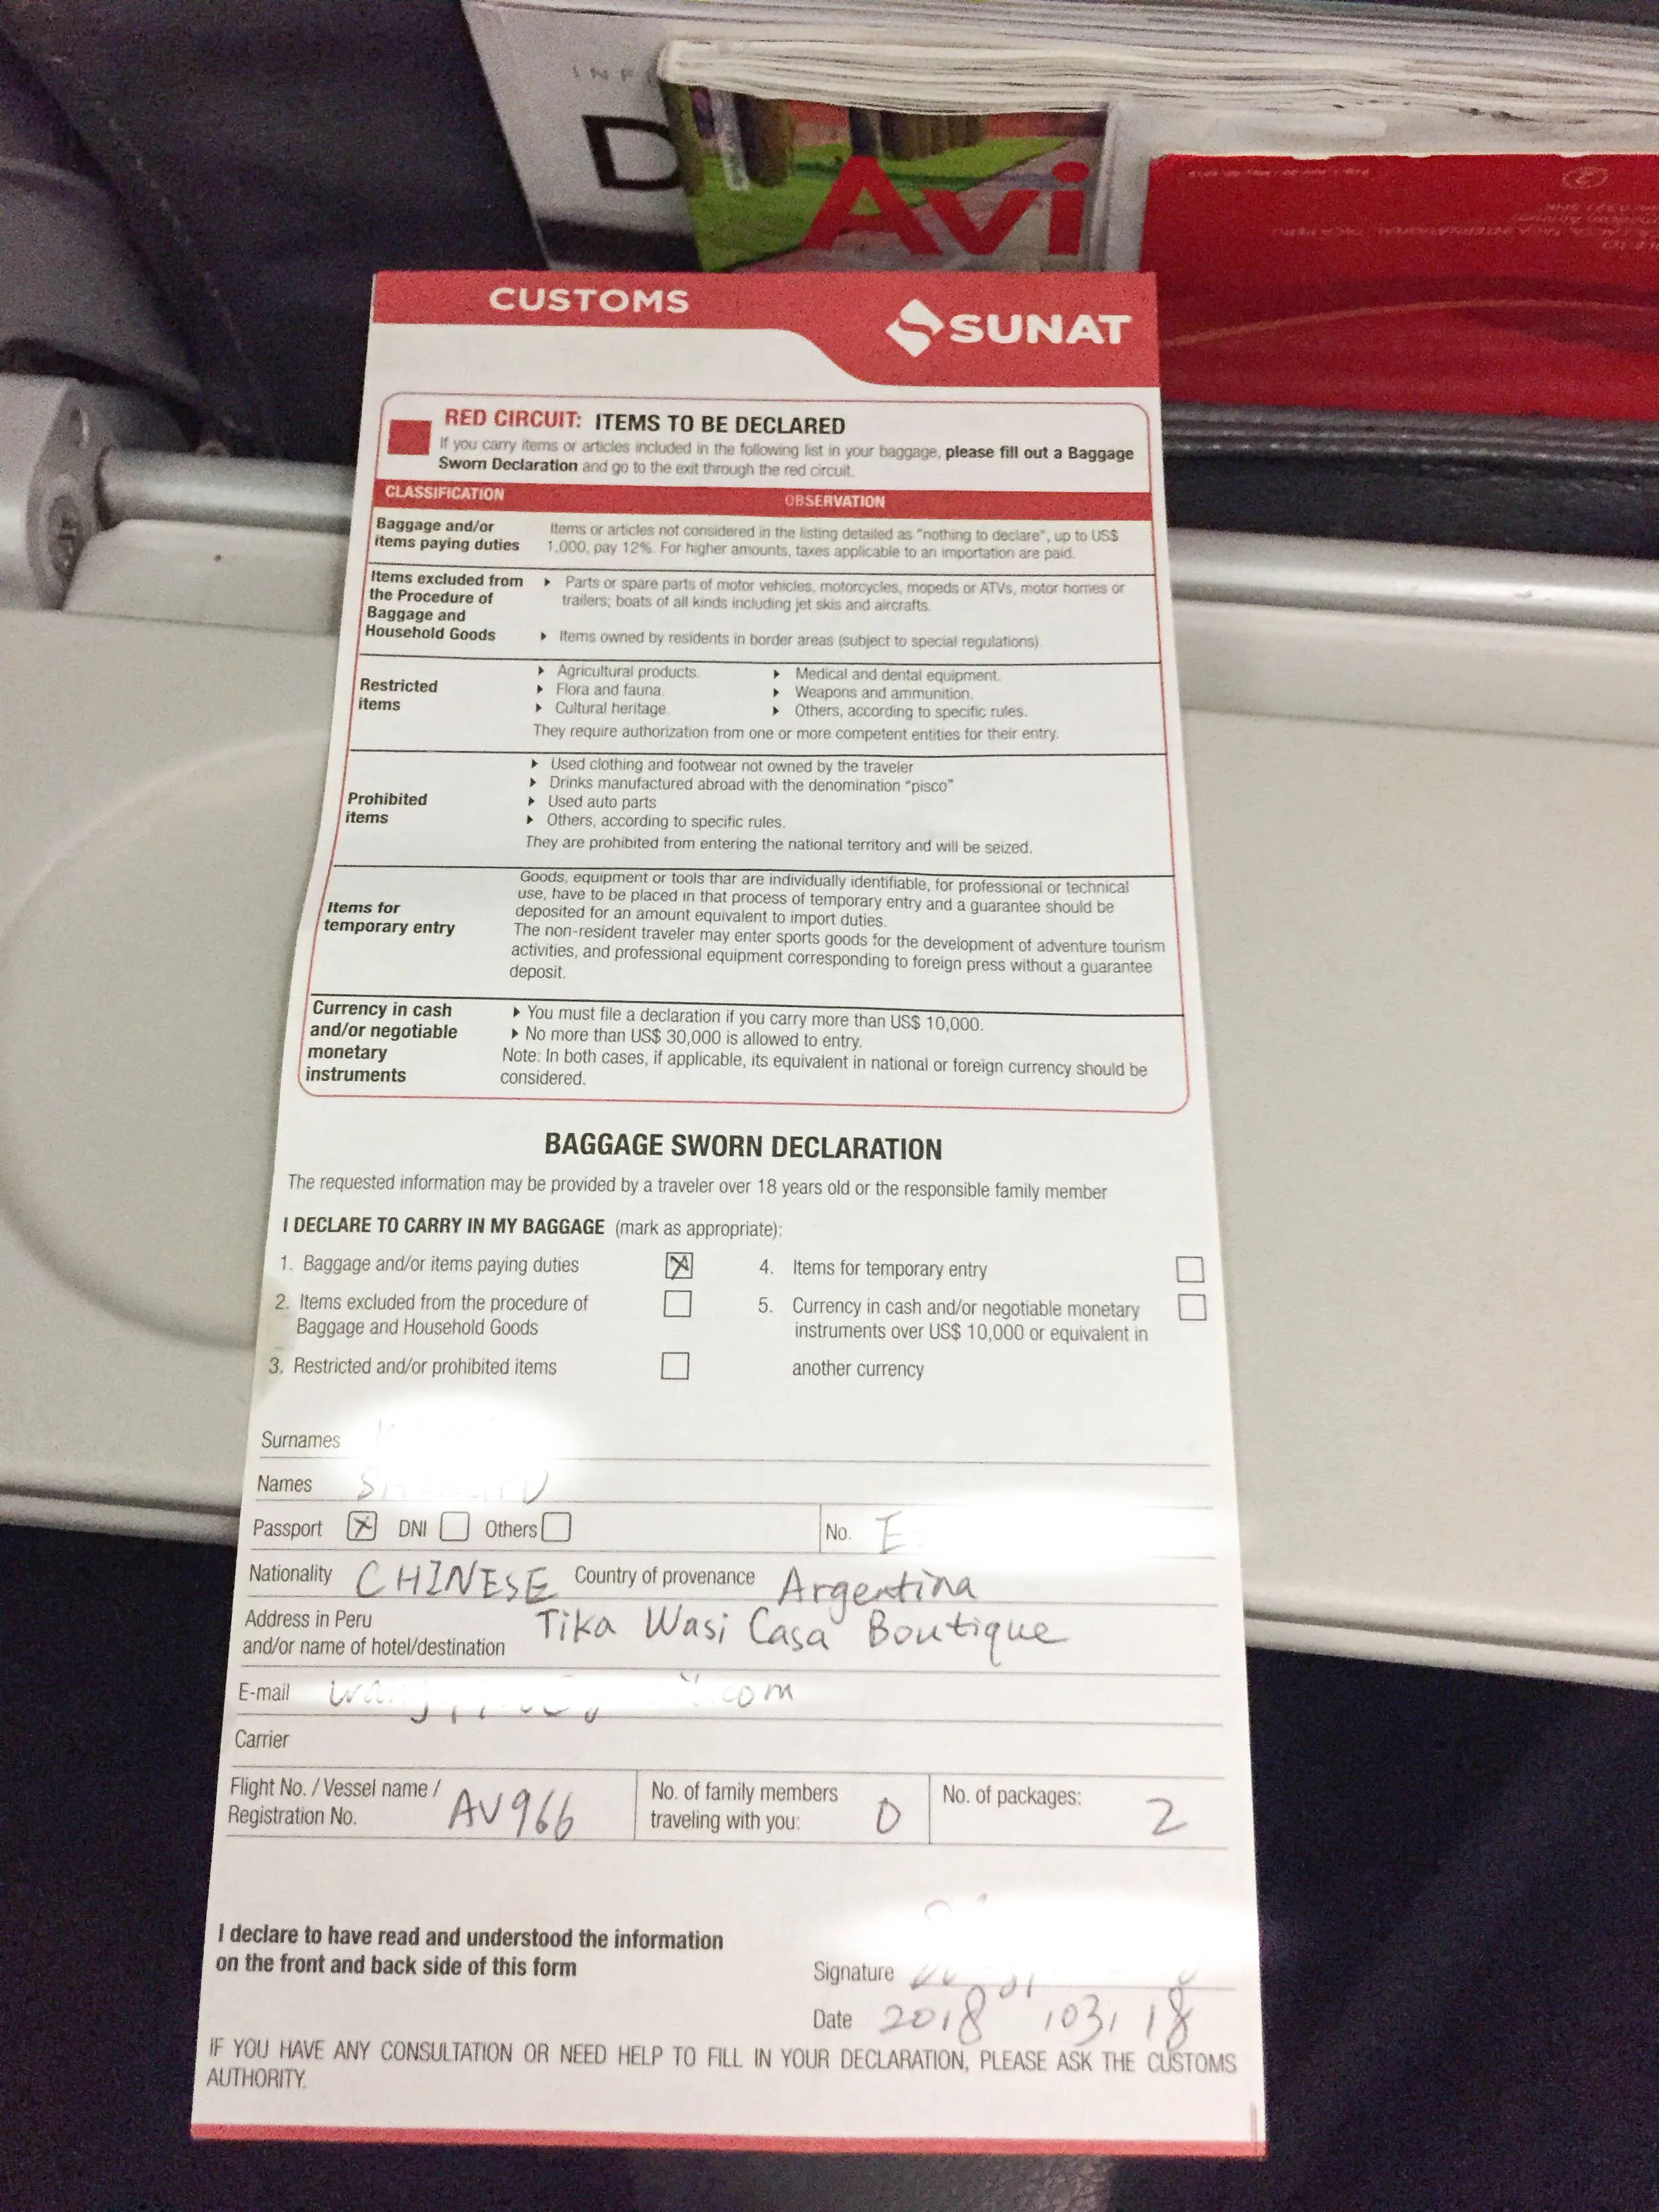 D
Avi
CUSTOMS
SUNAT
RED CIRCUIT: ITEMS TO BE DECLARED
If you carry items or articles included in the following list in your baggage, please fill out a Baggage
Sworn Declaration and go to the exit through the red circuit.
CLASSIFICATION OBSERVATION
Baggage and/or
items paying duties
Items or articles not considered in the listing detailed as "nothing to declare", up to US$
1,000, pay 12%. For higher amounts, taxes applicable to an importation are paid.
Items excluded from
the Procedure of
Baggage and
Household Goods
Parts or spare parts of motor vehicles, motorcycles, mopeds or ATVs, motor homes or
trailers; boats of all kinds including jet skis and aircrafts.
Items owned by residents in border areas (subject to special regulations).
Restricted
items
Agricultural products.
Flora and fauna.
Cultural heritage.
Medical and dental equipment.
Weapons and ammunition.
Others, according to specific rules.
They require authorization from one or more competent entities for their entry.
Prohibited
items
Used clothing and footwear not owned by the traveler
Drinks manufactured abroad with the denomination "pisco"
Used auto parts
Others, according to specific rules.
They are prohibited from entering the national territory and will be seized.
Items for
temporary entry
Goods, equipment or tools thar are individually identifiable, for professional or technical
use, have to be placed in that process of temporary entry and a guarantee should be
deposited for an amount equivalent to import duties.
The non-resident traveler may enter sports goods for the development of adventure tourism
activities, and professional equipment corresponding to foreign press without a guarantee
deposit.
Currency in cash
and/or negotiable
monetary
instruments
You must file a declaration if you carry more than US$ 10,000.
No more than US$ 30,000 is allowed to entry.
Note: In both cases, if applicable, its equivalent in national or foreign currency should be
considered.
BAGGAGE SWORN DECLARATION
The requested information may be provided by a traveler over 18 years old or the responsible family member
I DECLARE TO CARRY IN MY BAGGAGE (mark as appropriate):
1. Baggage and/or items paying duties
2. Items excluded from the procedure of
Baggage and Household Goods
3. Restricted and/or prohibited items
4. Items for temporary entry
5. Currency in cash and/or negotiable monetary
instruments over US$ 10,000 or equivalent in
another currency
Surnames
Names
Passport DNI Others No. E
Nationality CHINESE Country of provenance Argentina
Address in Peru
and/or name of hotel/destination Tika Wasi Casa Boutique
E-mail com
Carrier
Flight No. / Vessel name /
Registration No. AV966
No. of family members
traveling with you: 0
No. of packages: 2
I declare to have read and understood the information
on the front and back side of this form
Signature
Date 2018 /03/ 18
IF YOU HAVE ANY CONSULTATION OR NEED HELP TO FILL IN YOUR DECLARATION, PLEASE ASK THE CUSTOMS
AUTHORITY.